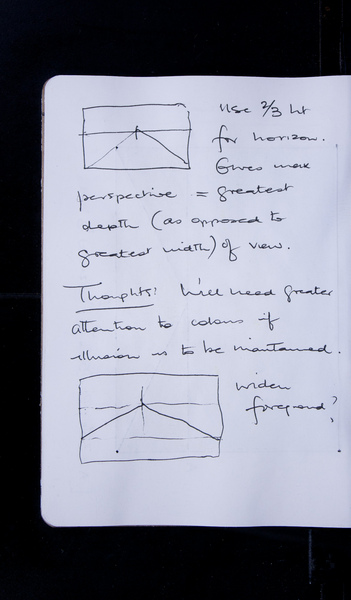 Use 2/3 ht
for horizon.
Gives max
perspective = greatest
depth (as opposed to
greatest width) of view.
Thoughts: Will need greater
attention to colours if
illusion is to be maintained.
widen
foreground?